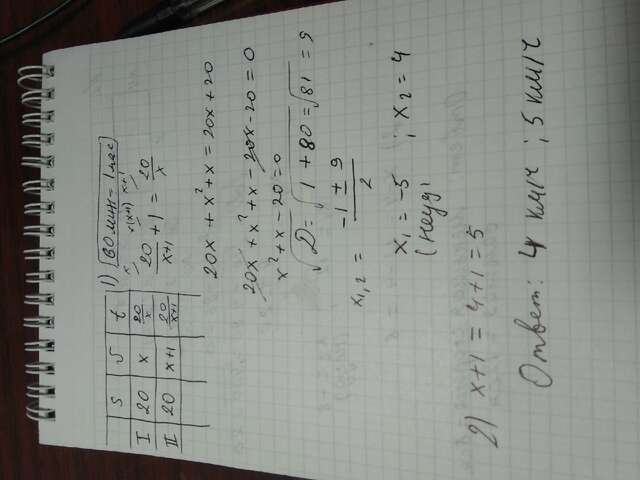 S V t
I 20 x 20/x
II 20 x+1 20/x+1
1) 60 мин = 1 час
x x(x+1) x+1
20/x+1 + 1 = 20/x
20x + x² + x = 20x + 20
20x + x² + x - 20x - 20 = 0
x² + x - 20 = 0
√D = √1 + 80 = √81 = 9
x1,2 = -1 ± 9 / 2
x1 = -5 ; x2 = 4
(неуд)
2) x+1 = 4+1 = 5
Ответ: 4 км/ч ; 5 км/ч